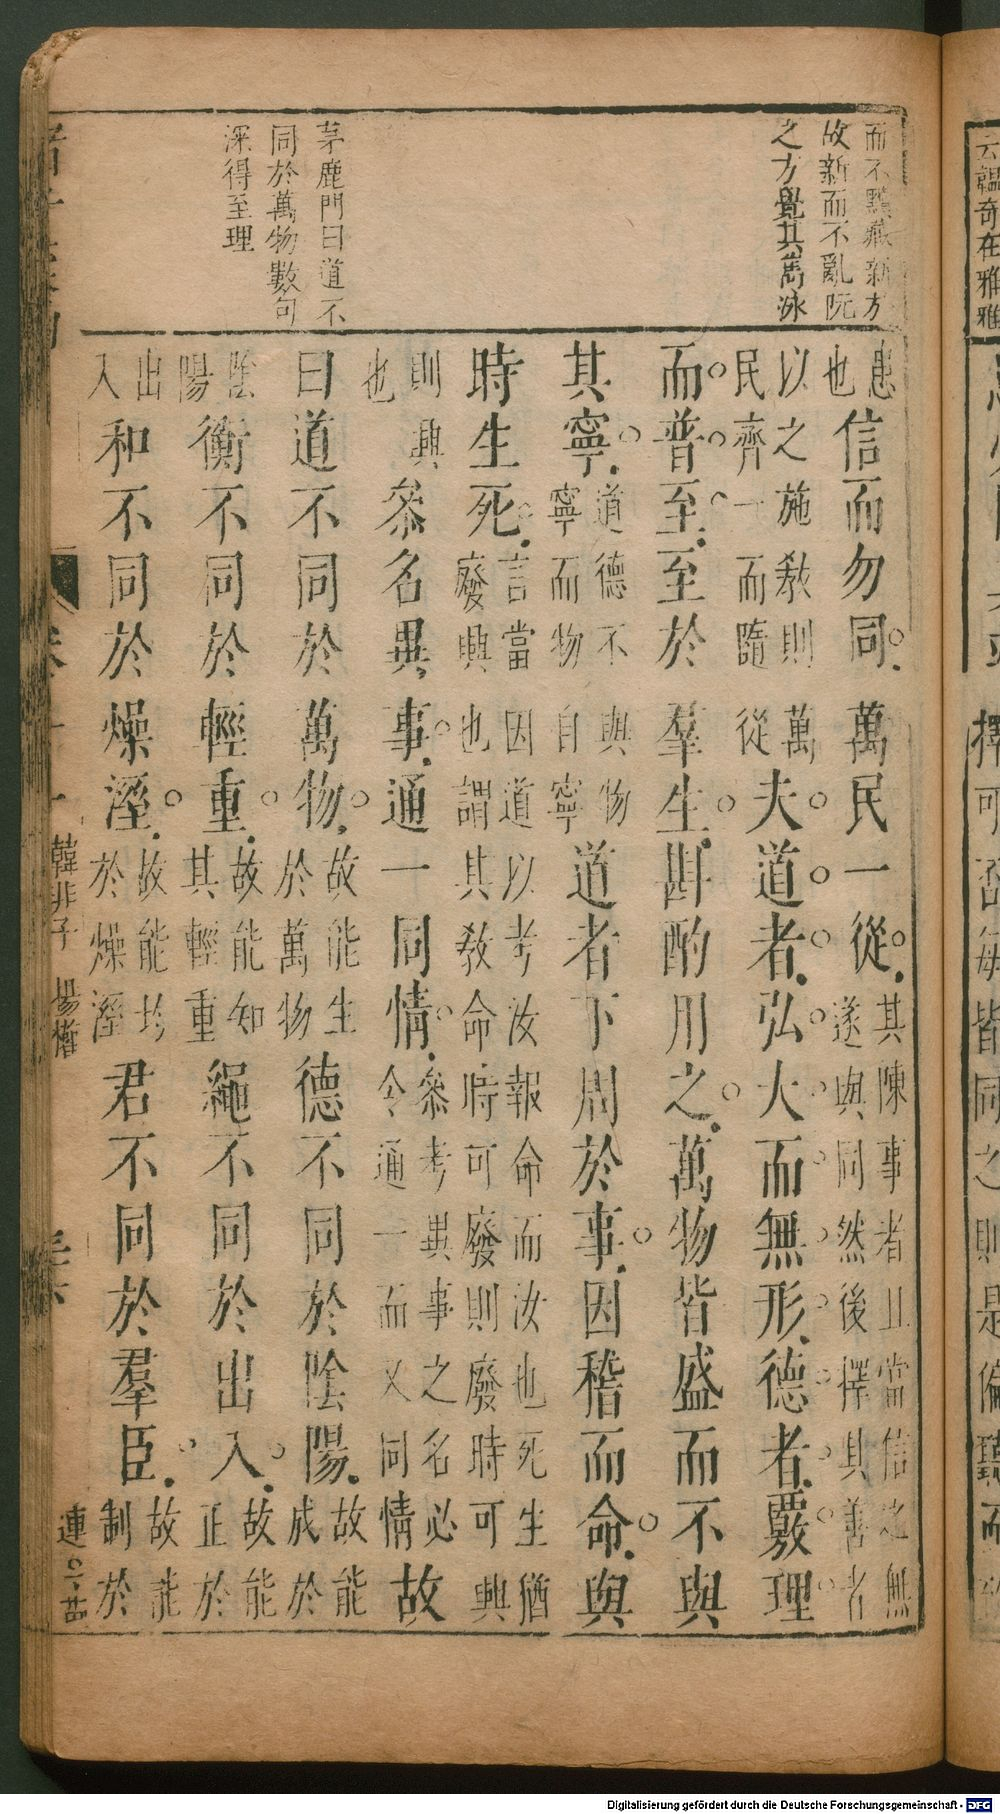 云韞奇在雅雅
擇可否每皆同之則是偏聽而
而不黦藏新於
故新而不亂阮
之方覺其雋永
茅鹿門曰道不
同於萬物數句
深得至理
患也信而勿同。萬民一從。其陳事者且當信之無遂與同然後擇其善者
以之施教則萬民齊一而隨從夫道者。弘大而無形。德者。覈理
而普至。至於羣生。斟酌用之。萬物皆盛而不與
其寧。道德不與物寧而物自寧道者下周於事。因稽而命。與
時生死。言當因道以考汝報命而汝也死生猶廢興也謂其教命時可廢則廢時可興
則興也叅名異事。通一同情。叅考異事之名必令通一而又同情故
曰道不同於萬物。故能生於萬物德不同於陰陽。故能成於
陰陽衡不同於輕重。故能知其輕重繩不同於出入。故能正於
出入和不同於燥溼。故能均於燥溼君不同於羣臣。故能制於
韓非子 楊權